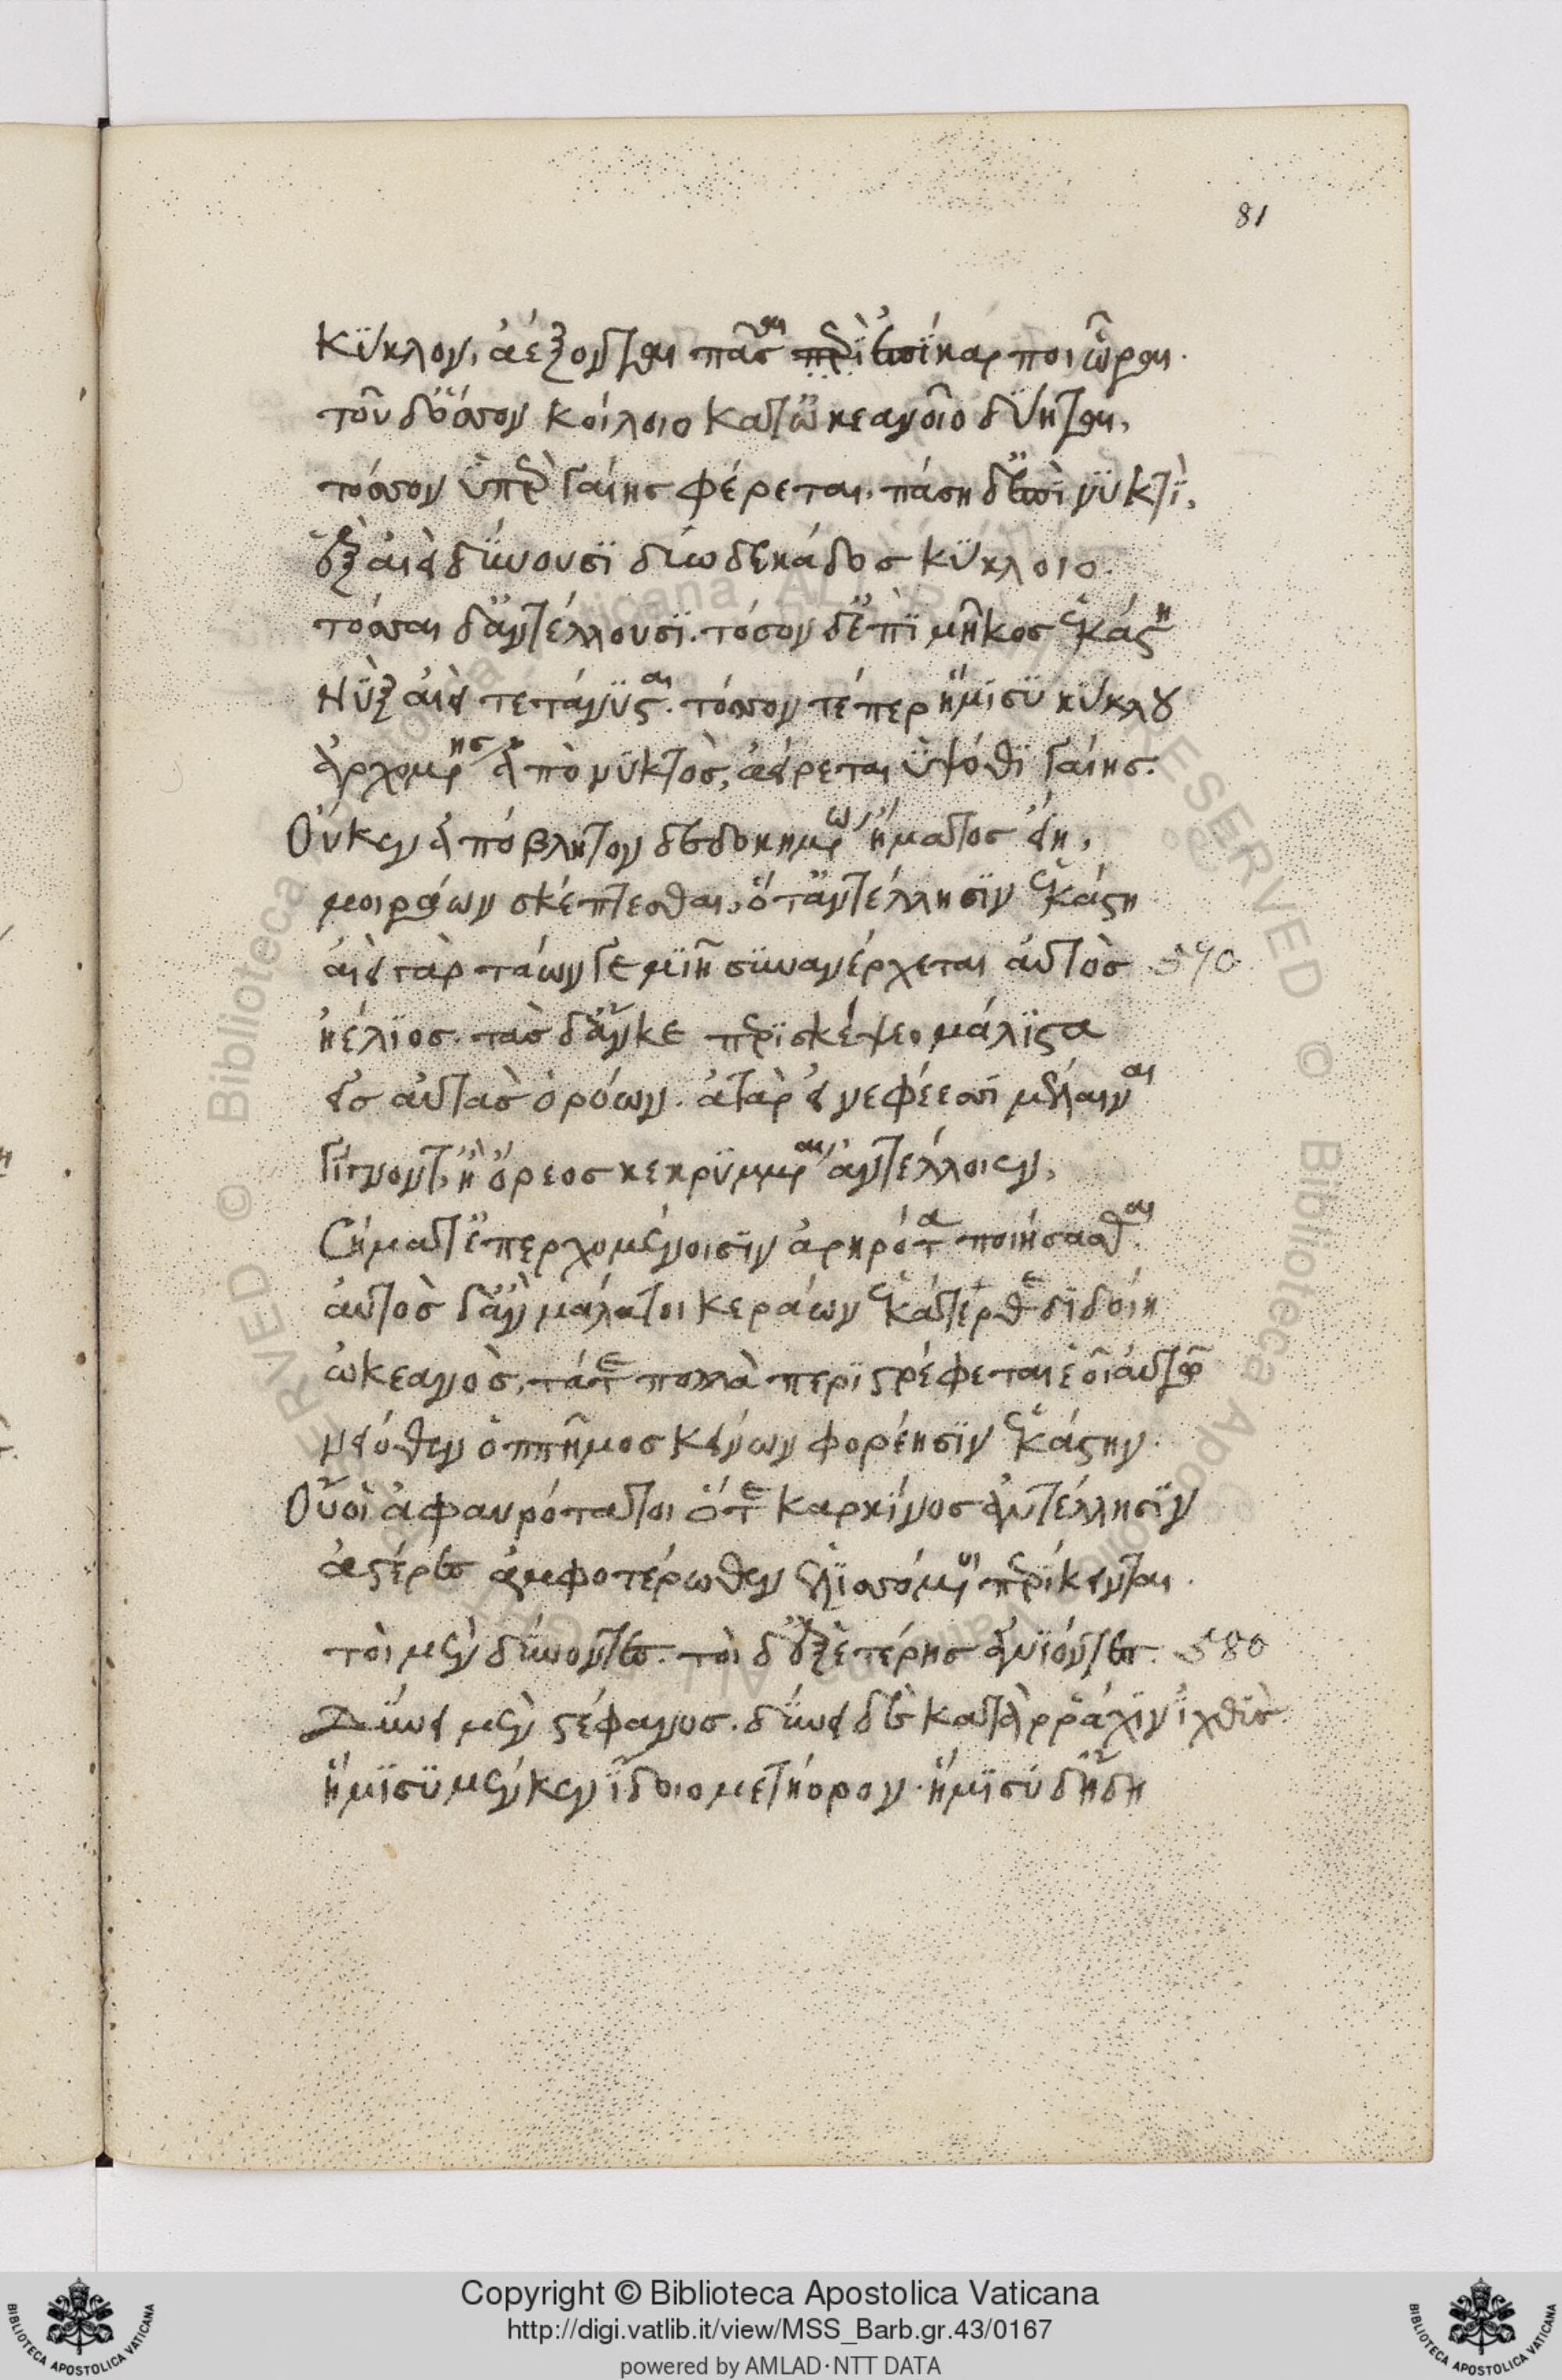 81
κύκλον, ἀέξονται πᾶσαι ἐπικάρπιοι ὧραι.
τοῦ δ' ὅσσον κοίλοιο κατ' ὠκεανοῖο δύηται,
τόσσον ὑπὲρ γαίης φέρεται. πάση δ' ἐπὶ νυκτὶ,
ἓξ ἀιεὶ δύνουσι δυωδεκάδος κύκλοιο.
τόσσαι δ' ἀντέλλουσι. τόσον δ' ἐπὶ μῆκος ἑκάστη
Νὺξ ἀιεὶ τετάνυσται. τόσσον τέ περ ἥμισυ κύκλου
ἀρχομένης ἀπὸ νυκτὸς, ἀείρεται ὑψόθι γαίης.
Οὔ κεν ἀπόβλητον δεδοκημένω ἤματος εἴη,
μοιράων σκέπτεσθαι, ὅτ' ἀντέλλησιν ἑκάστη
ἀιεὶ γὰρ τάων γε μιῇ συνανέρχεται αὐτὸς 570
ἠέλιος. τὰς δ' ἄν κε περισκέψειο μάλιστα
εἰς αὐτὰς ὁρόων. ἀτὰρ εἰ νεφέεσσι μέλαιναι
γίγνοιντ', ἢ ὄρεος κεκρυμμέναι ἀντέλλοιεν,
Σήματ' ἐπερχομένοισιν ἀρηρότα ποιήσασθαι.
αὐτὸς δ' ἂν μάλα τοι κεράων ἑκάτερθε διδοίη
ὠκεανὸς, τά τε πολλὰ περιστρέφεται ἑοῖ αὐτῷ
νειόθεν ὁππῆμος κείνων φορέησιν ἑκάστην.
Οὔ οἱ ἀφαυρότατοι ὅτε καρκίνος ἀντέλλησιν
ἀστέρες ἀμφοτέρωθεν ἑλισσόμενοι περίκεινται.
τοὶ μὲν δύνοντες. τοὶ δ' ἐξ ἑτέρης ἀνιόντες. 580
Δύνει μὲν στέφανος. δύνει δὲ κατὰ ῥράχιν ἰχθὺς
ἥμισυ μέν κεν ἴδοιο μετήορον. ἥμισυ δ' ἤδη
Copyright © Biblioteca Apostolica Vaticana
http://digi.vatlib.it/view/MSS_Barb.gr.43/0167
powered by AMLAD·NTT DATA